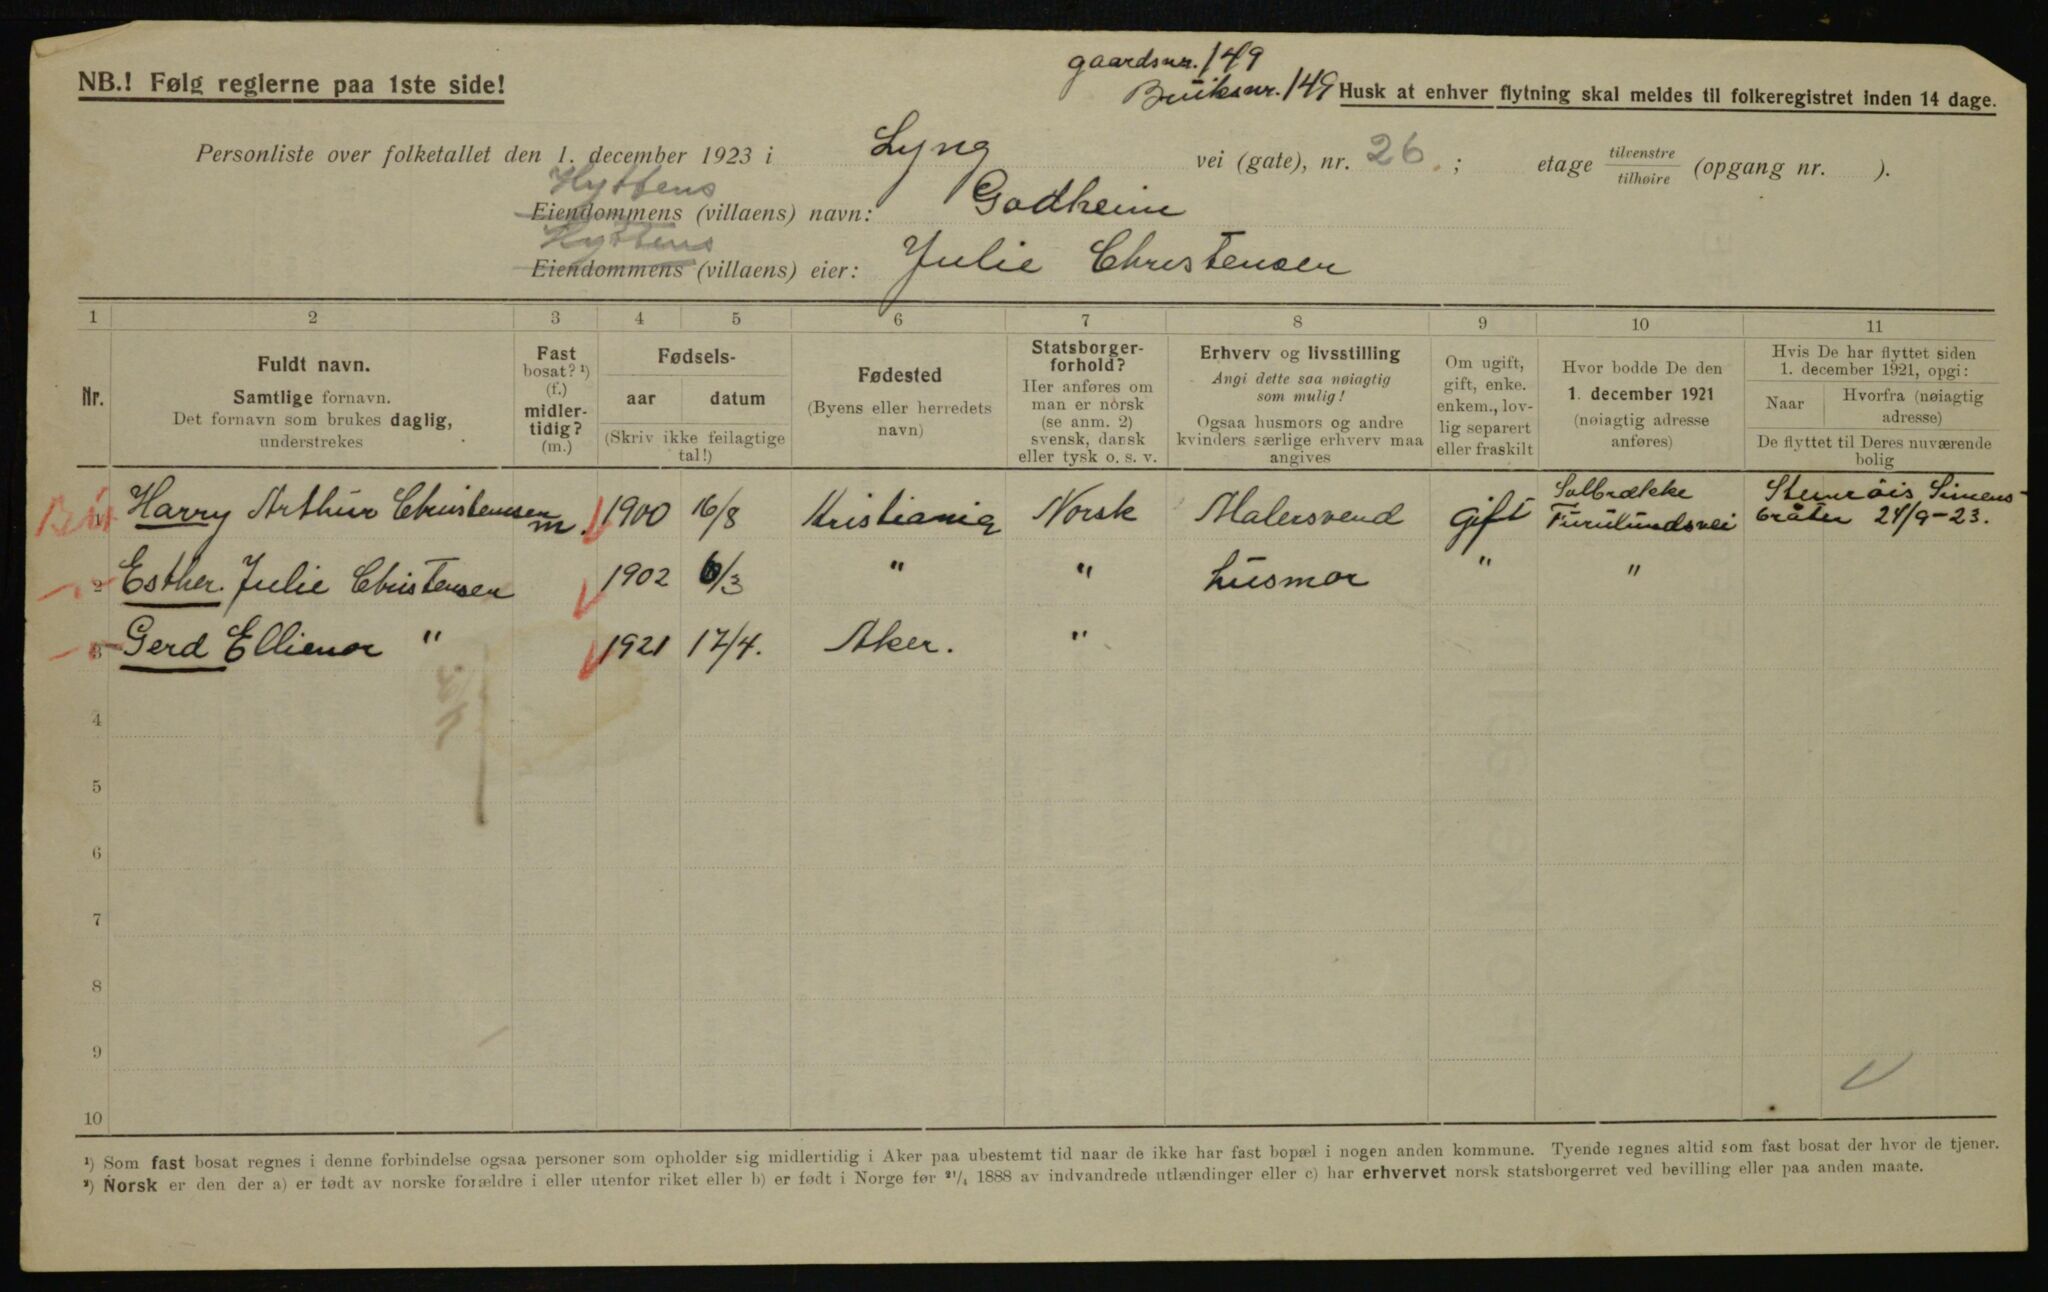 gaardsnr. 149
NB.! Følg reglerne paa 1ste side!
Bruksnr. 149 Husk at enhver flytning skal meldes til folkeregistret inden 14 dage.
Personliste over folketallet den 1. december 1923 i Lyng vei (gate), nr. 26. ; etage tilvenstre tilhøire (opgang nr. ).
Hyttens
Eiendommens (villaens) navn: Godheim
Hyttens
Eiendommens (villaens) eier: Julie Christensen
1 2 3 4 5 6 7 8 9 10 11
Nr.
Fuldt navn.
Samtlige fornavn.
Det fornavn som brukes daglig,
understrekes
Fast
bosat? ¹)
(f.)
midler-
tidig?
(m.)
Fødsels-
aar datum
(Skriv ikke feilagtige
tal!)
Fødested
(Byens eller herredets
navn)
Statsborger-
forhold?
Her anføres om
man er norsk
(se anm. 2)
svensk, dansk
eller tysk o. s. v.
Erhverv og livsstilling
Angi dette saa nøiagtig
som mulig!
Ogsaa husmors og andre
kvinders særlige erhverv maa
angives
Om ugift,
gift, enke.
enkem., lov-
lig separert
eller fraskilt
Hvor bodde De den
1. december 1921
(nøiagtig adresse
anføres)
Hvis De har flyttet siden
1. december 1921, opgi:
Naar Hvorfra (nøiagtig
adresse)
De flyttet til Deres nuværende
bolig
1 Harry Arthur Christensen m. 1900 16/8 Kristiania Norsk Malersvend gift Solbrække
Furulundsvei
Simens-
bråten 24/9-23.
2 Esther. Julie Christensen 1902 6/3 " " husmor " "
3 Gerd Ellienor " 1921 17/4. Aker. "
4
5
6
7
8
9
10
¹) Som fast bosat regnes i denne forbindelse ogsaa personer som opholder sig midlertidig i Aker paa ubestemt tid naar de ikke har fast bopæl i nogen anden kommune. Tyende regnes altid som fast bosat der hvor de tjener.
²) Norsk er den der a) er født av norske forældre i eller utenfor riket eller b) er født i Norge før ²¹/₄ 1888 av indvandrede utlændinger eller c) har erhvervet norsk statsborgerret ved bevilling eller paa anden maate.